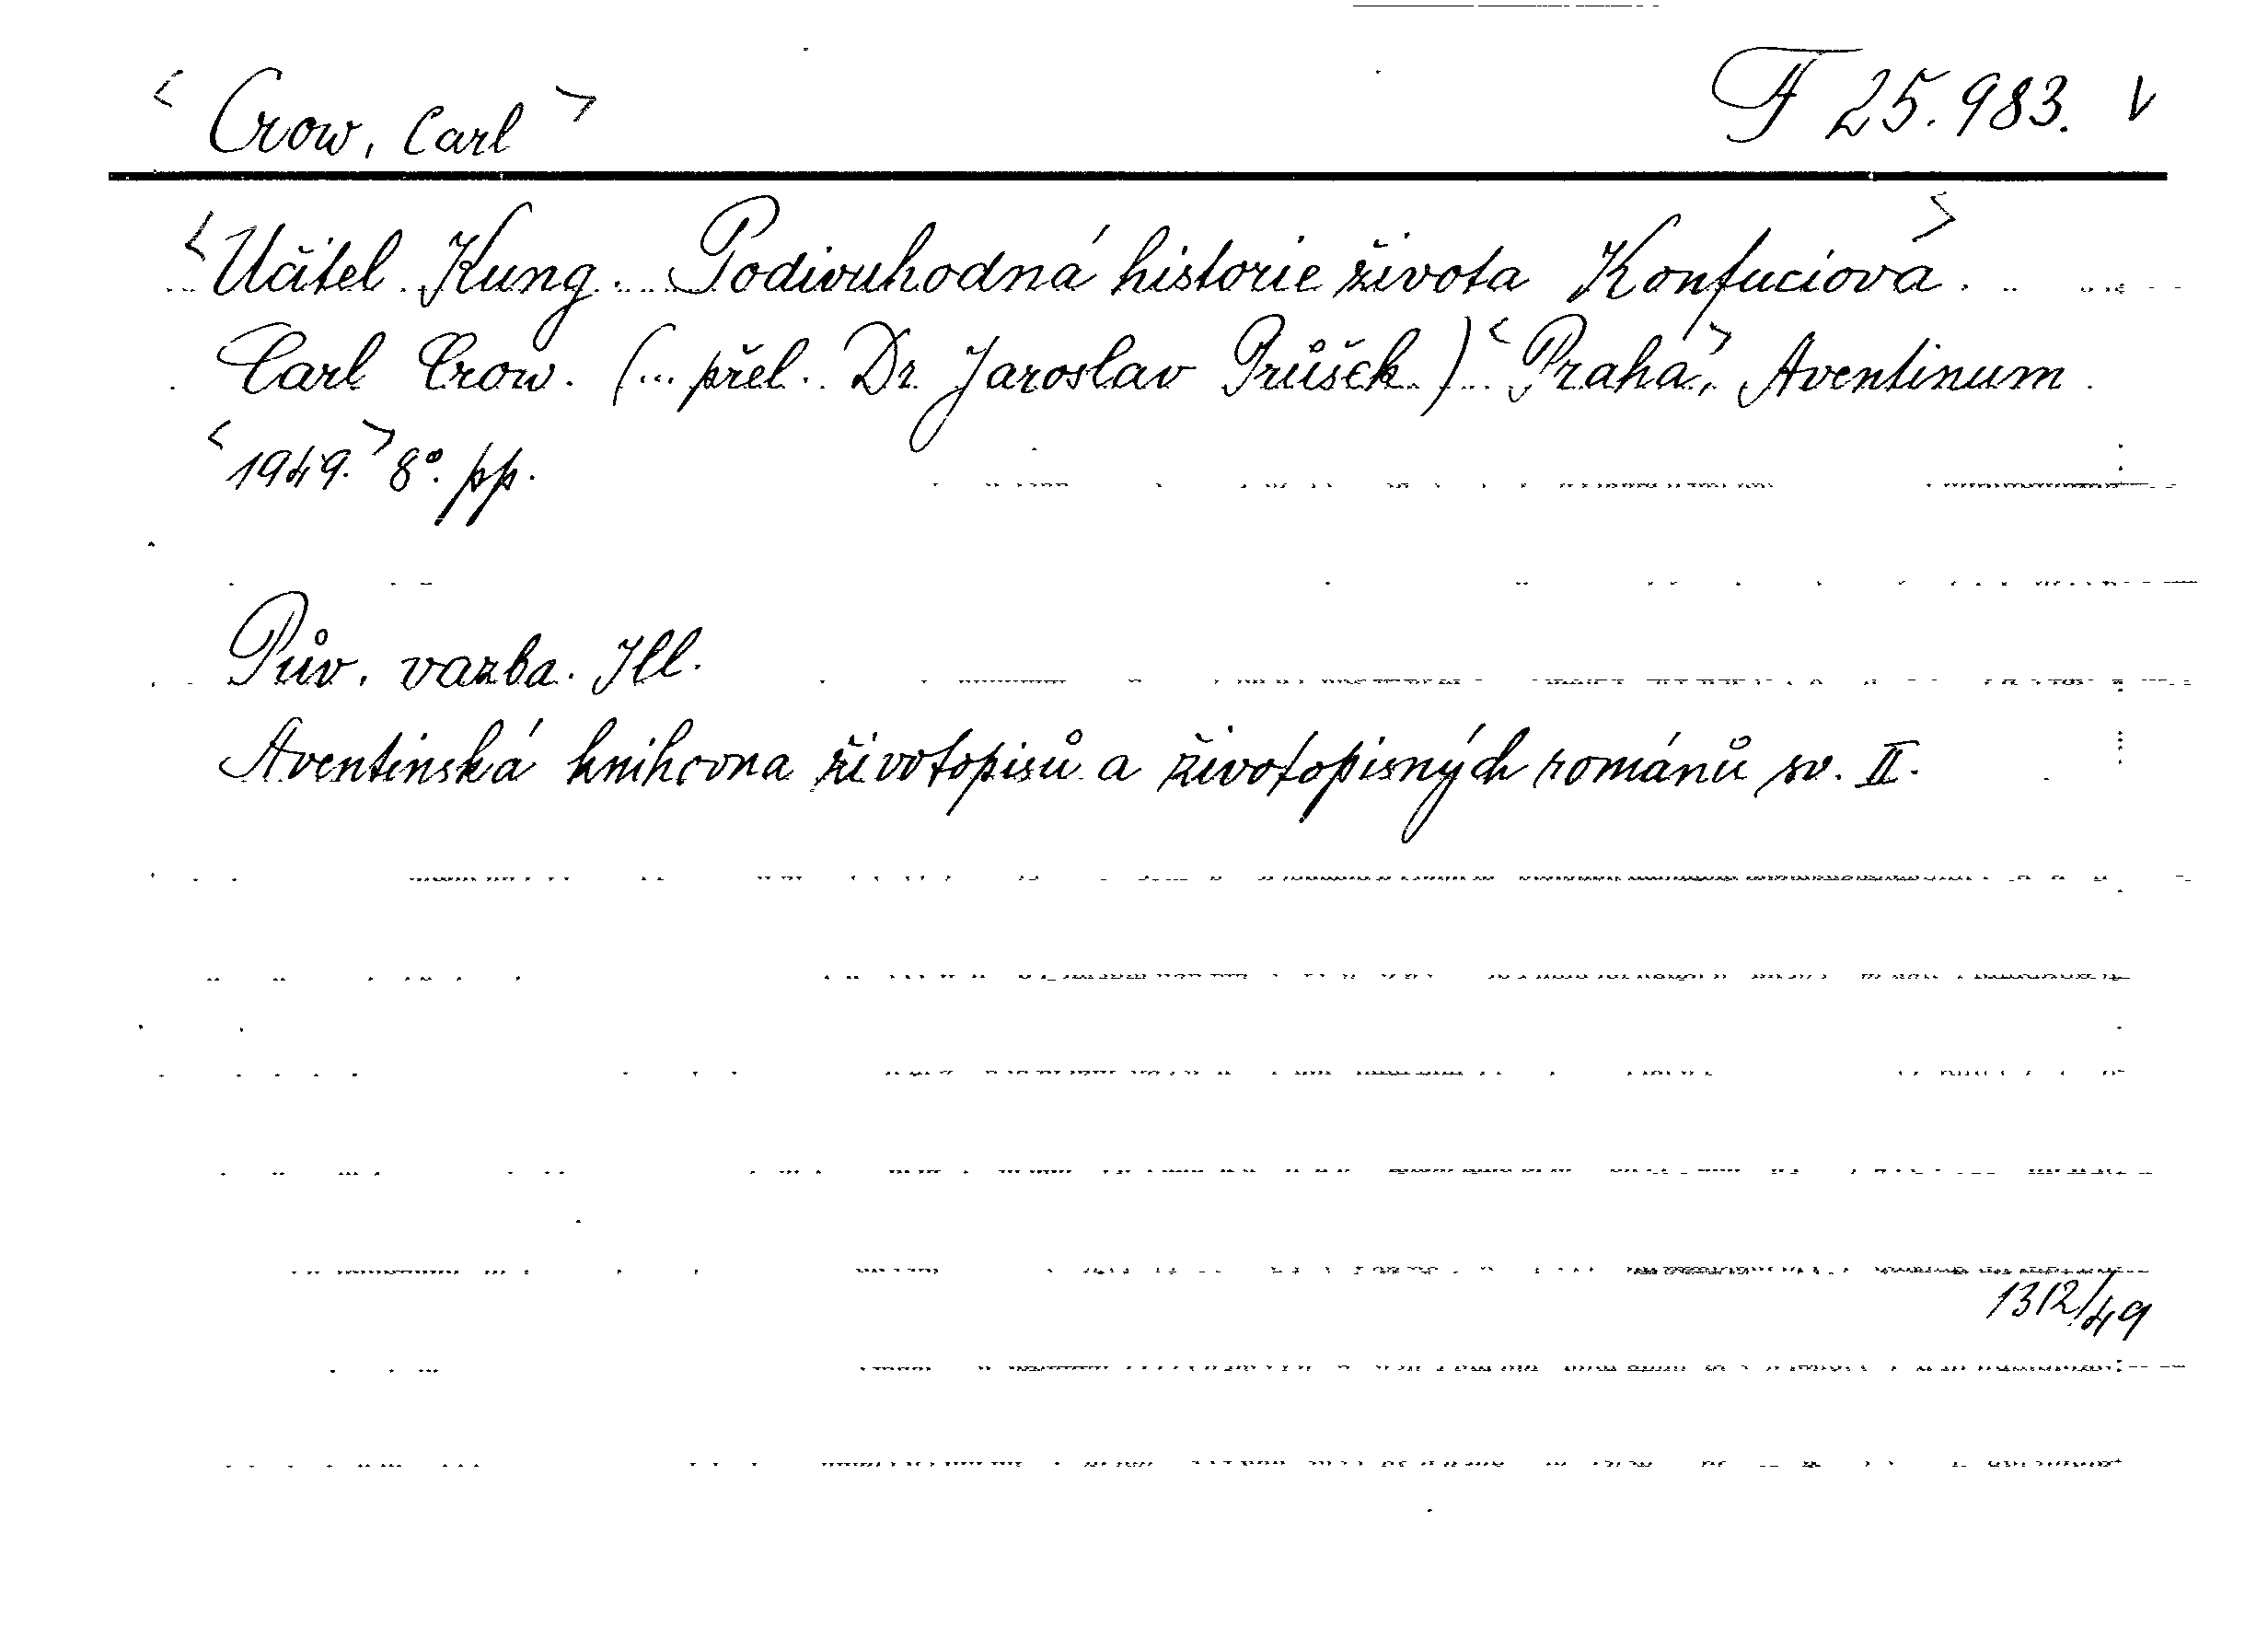 <Crow, Carl> F 25.983. V
<Učitel Kung. Podivuhodná historie života Konfuciova>.
Carl Crow. (... přel. Dr. Jaroslav Průšek.) <Praha>, Aventinum
<1949.> 8°. pp.
Pův. vazba. Ill.
Aventinská knihovna životopisů a životopisných románů sv. II.
1312/49